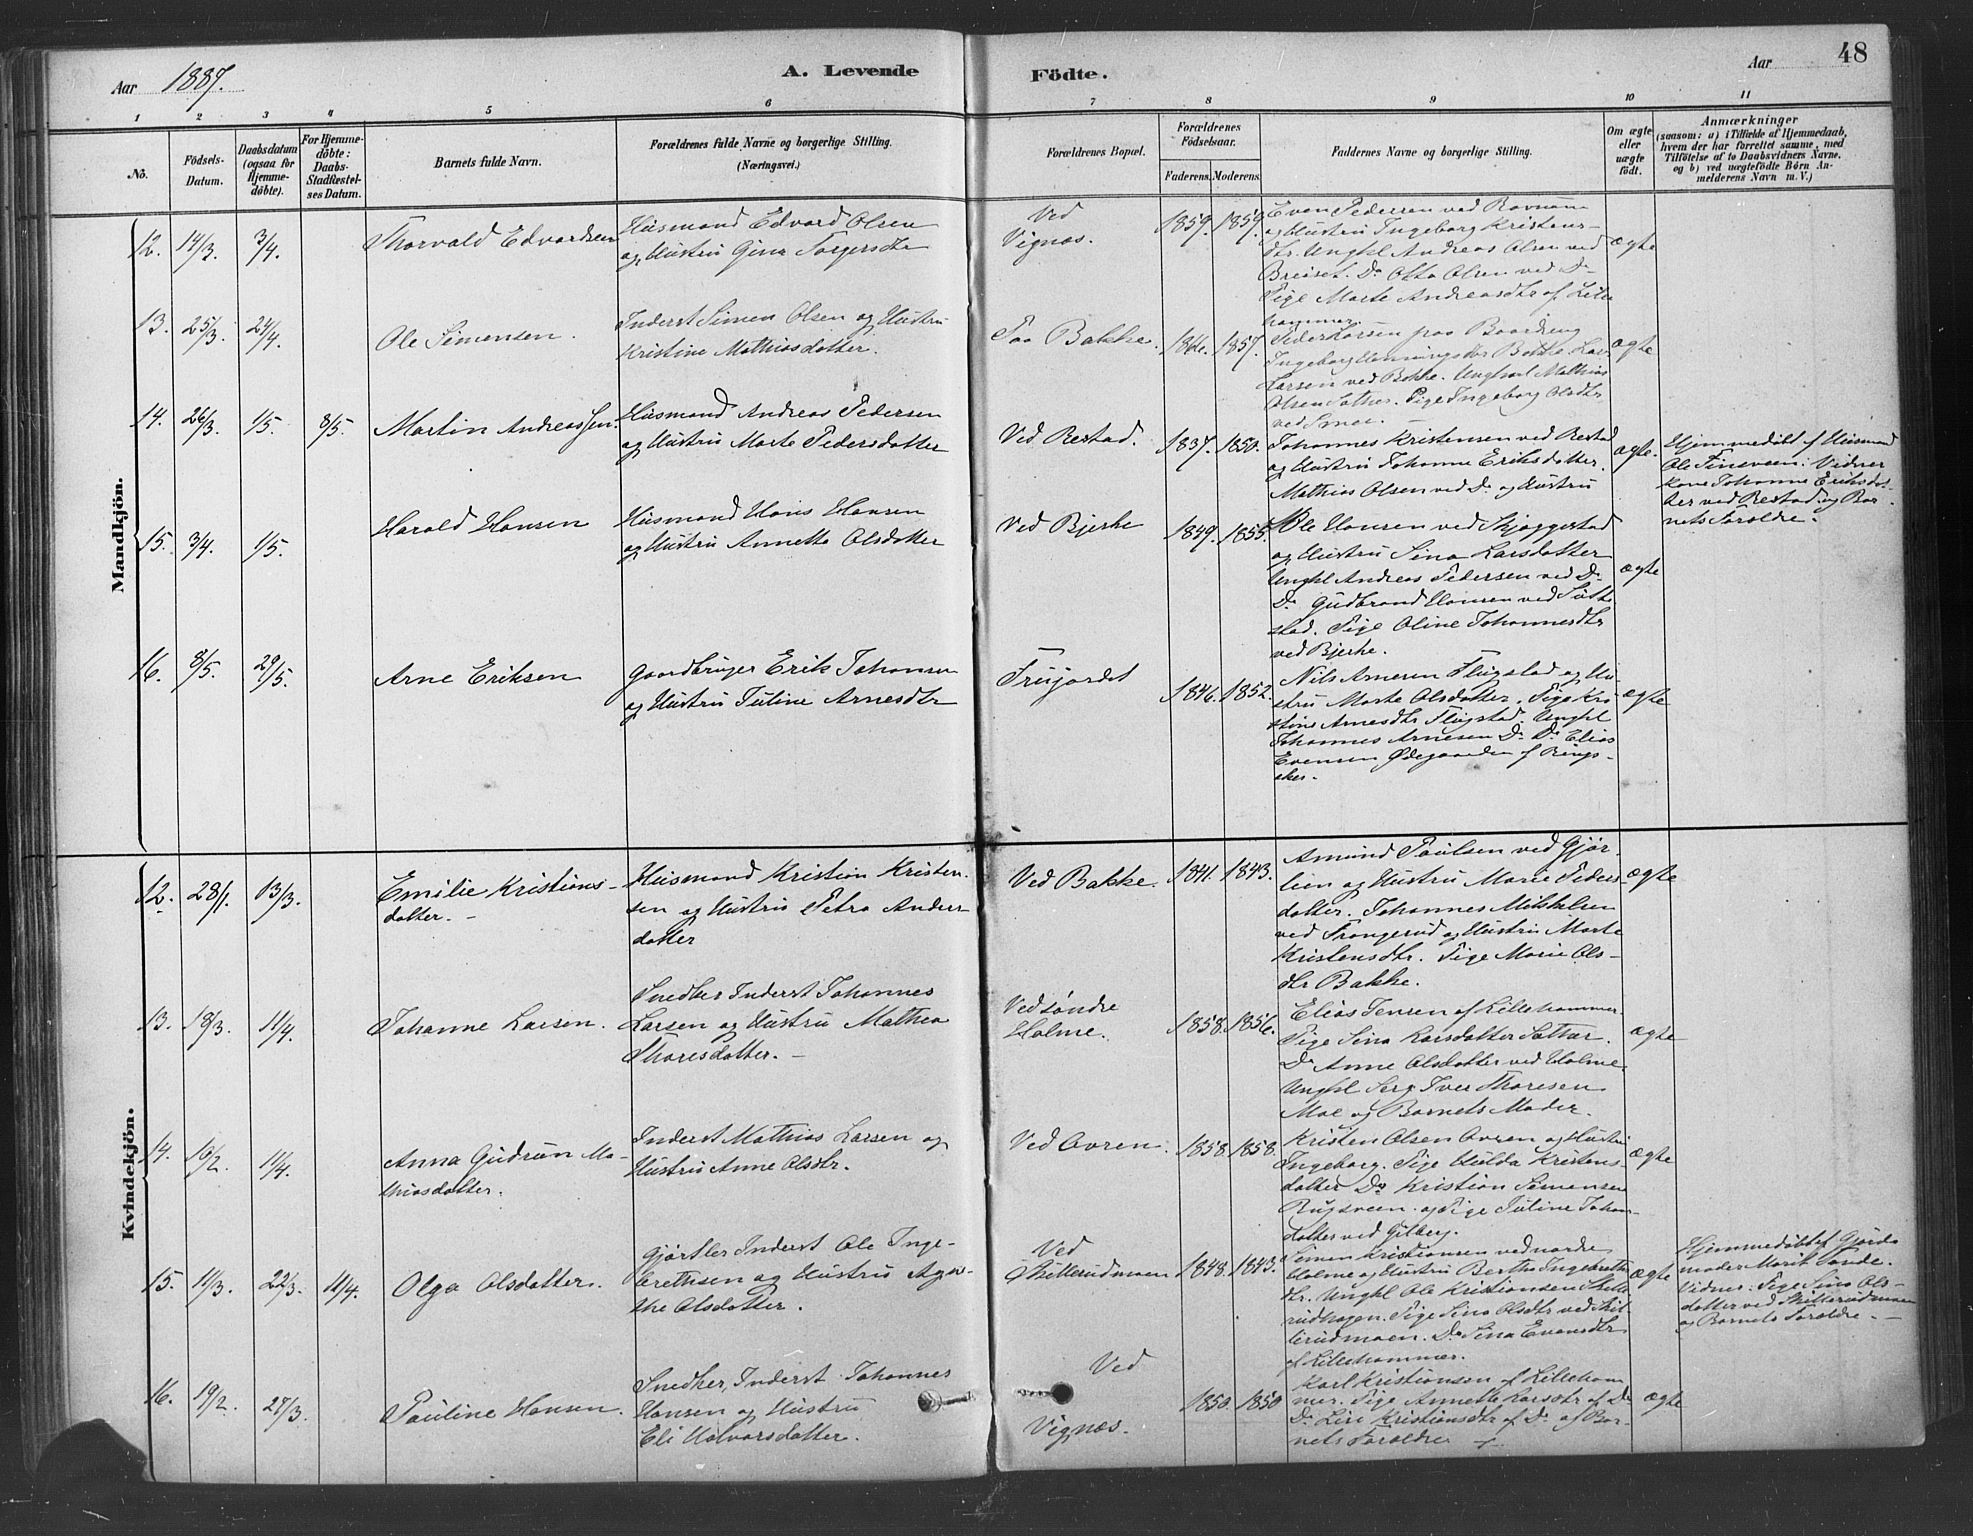 Aar 1887.
A. Levende
Födte.
Aar
48
1 2 3 4 5 6 7 8 9 10 11
No.
Födsels-
Datum.
Daabsdatum
(ogsaa for
Hjemme-
døbte).
For Hjemme-
döbte:
Daabs-
Stadfæstel-
ses Datum.
Barnets fulde Navn.
Forældrenes fulde Navne og borgerlige Stilling.
(Næringsvei.)
Forældrenes Bopæl.
Forældrenes
Födselsaar.
Faderens. Moderens.
Faddernes Navne og borgerlige Stilling.
Om ægte
eller
uægte
födt.
Anmærkninger
(saasom: a) i Tilfælde af Hjemmedaab,
hvem der har forrettet samme, med
Tilföielse af to Daabsvidners Navne,
og b) ved uægtefödte Börn An-
melderens Navn m. V.)
Mandkjön.
12. 14/3. 3/4.
Thorvald Edvardsen
Husmand Edvard Olsen
og Hustru Gina
Ved
Vignæs.
1859. 1859.
Even Pedersen ved
og Hustru Ingeborg Kristens-
dtr. Unghl Andreas Olsen ved
Breiset. Do Otto Olsen ved Do
Pige Marte Andreasdtr af Lille
hammer.
ægte
13. 25/3. 24/4.
Ole Simensen.
Inderst Simen Olsen og Hustru
Kristine Mathiasdatter.
Paa Bakke.
1857.
Peder Larsen paa
Ingeborg
Larsen ved Bakke. Ungkarl Mathias
Olsen Sother. Pige Ingeborg Olsdtr.
ægte
14. 26/3. 1/5. 8/5.
Martin Andreassen.
Husmand Andreas Pedersen
og Hustru Marte Pedersdatter
Ved Restad.
1837. 1850.
Johannes Kristensen ved Restad
og Hustru Johanne Eriksdatter.
Mathias Olsen ved Do og Hustru
ægte.
Hjemmedøbt af Husmand
Ole Fineveen. Vidner
Kone Johanne Eriksdat-
ter ved Restad og Bar-
nets Forældre.
15. 3/4. 1/5.
Harald Hansen
Husmand Hans Hansen
og Hustru Annette Olsdatter
Ved Bjerke
1849. 1855.
Ole Hansen ved Skjæggestad
og Hustru Sina Larsdatter
Unghl Andreas Pedersen ved Do
Do Gudbrand Hansen ved
stad. Pige Oline Johannesdtr
ved Bjerke.
ægte
16. 8/5. 29/5.
Arne Eriksen
Gaardbruger Erik Johansen
og Hustru Juline Arnesdtr
Trujordet
1846. 1852.
Nils Arnesen Flugstad og Hu-
stru Marte Olsdatter. Pige Kri
stine Arnesdtr Flugstad. Unghl
Johannes Arnesen Do Do Elias
Evensen Ødegaarden af Rings-
aker.
ægte
Kvindekjön.
12. 28/1. 13/3.
Emilie Kristians-
datter.
Husmand Kristian Kristen-
sen og Hustru Petra Anders-
datter
Ved Bakke.
1841. 1843.
Amund Paulsen ved Gjør-
lien og Hustru Marie Peders-
datter. Johannes Mikkelsen
ved Prangerud og Hustru Marte
Kristensdtr. Pige Marie Ols-
dtr Bakke.
ægte
13. 18/3. 11/4.
Johanne Larsen.
Snedker Inderst Johannes
Larsen og Hustru Mathea
Thoresdatter.
Ved søndre
Holme.
1858. 1856.
Elias Jensen af Lillehammer
Pige Sina Larsdatter Sother.
Do Anne Olsdatter ved Holme
Unghl Serg. Iver Thoresen
Moe og Barnets Moder.
ægte
14. 16/2. 11/4.
Anna Gudrun Ma-
thiasdatter.
Inderst Mathias Larsen og
Hustru Anne Olsdtr.
Ved Avren.
1858. 1858.
Kristen Olsen Avren og Hustru
Ingeborg. Pige Hulda Kristens-
datter Do Kristian Simensen
Rugsveen. og Pige Juline Johan-
datter ved Gilberg.
ægte
15. 11/3. 22/3. 11/4.
Olga Olsdatter.
Gjørtler Inderst Ole Inge-
brethsen og Hustru Agne-
the Olsdatter.
Ved
Skillerudmoen
1848. 1843.
Simen Kristiansen ved nordre
Holme og Hustru Berthe Ingebreths
dtr. Unghl Ole Kristiansen Skille
rudhagen. Pige Sina Olsdtr ved Skil-
lerudmoen. Do Sina Evensdtr
af Lillehammer.
ægte
Hjemmedøbt af Gjorde
moder Marit Sande.
Vidner: Pige Sina Ols-
datter ved Skillerudmoen
og Barnets Forældre.
16. 19/2. 27/3.
Pauline Hansen.
Snedker, Inderst Johannes
Hansen og Hustru
Eli Halvorsdatter.
Ved
Vignæs.
1850. 1850
Karl Kristiansen af Lilleham
mer. Pige Annette Larsdtr af Do
Do Lise Kristiansdtr af Do af Bar-
nets Forældre
ægte